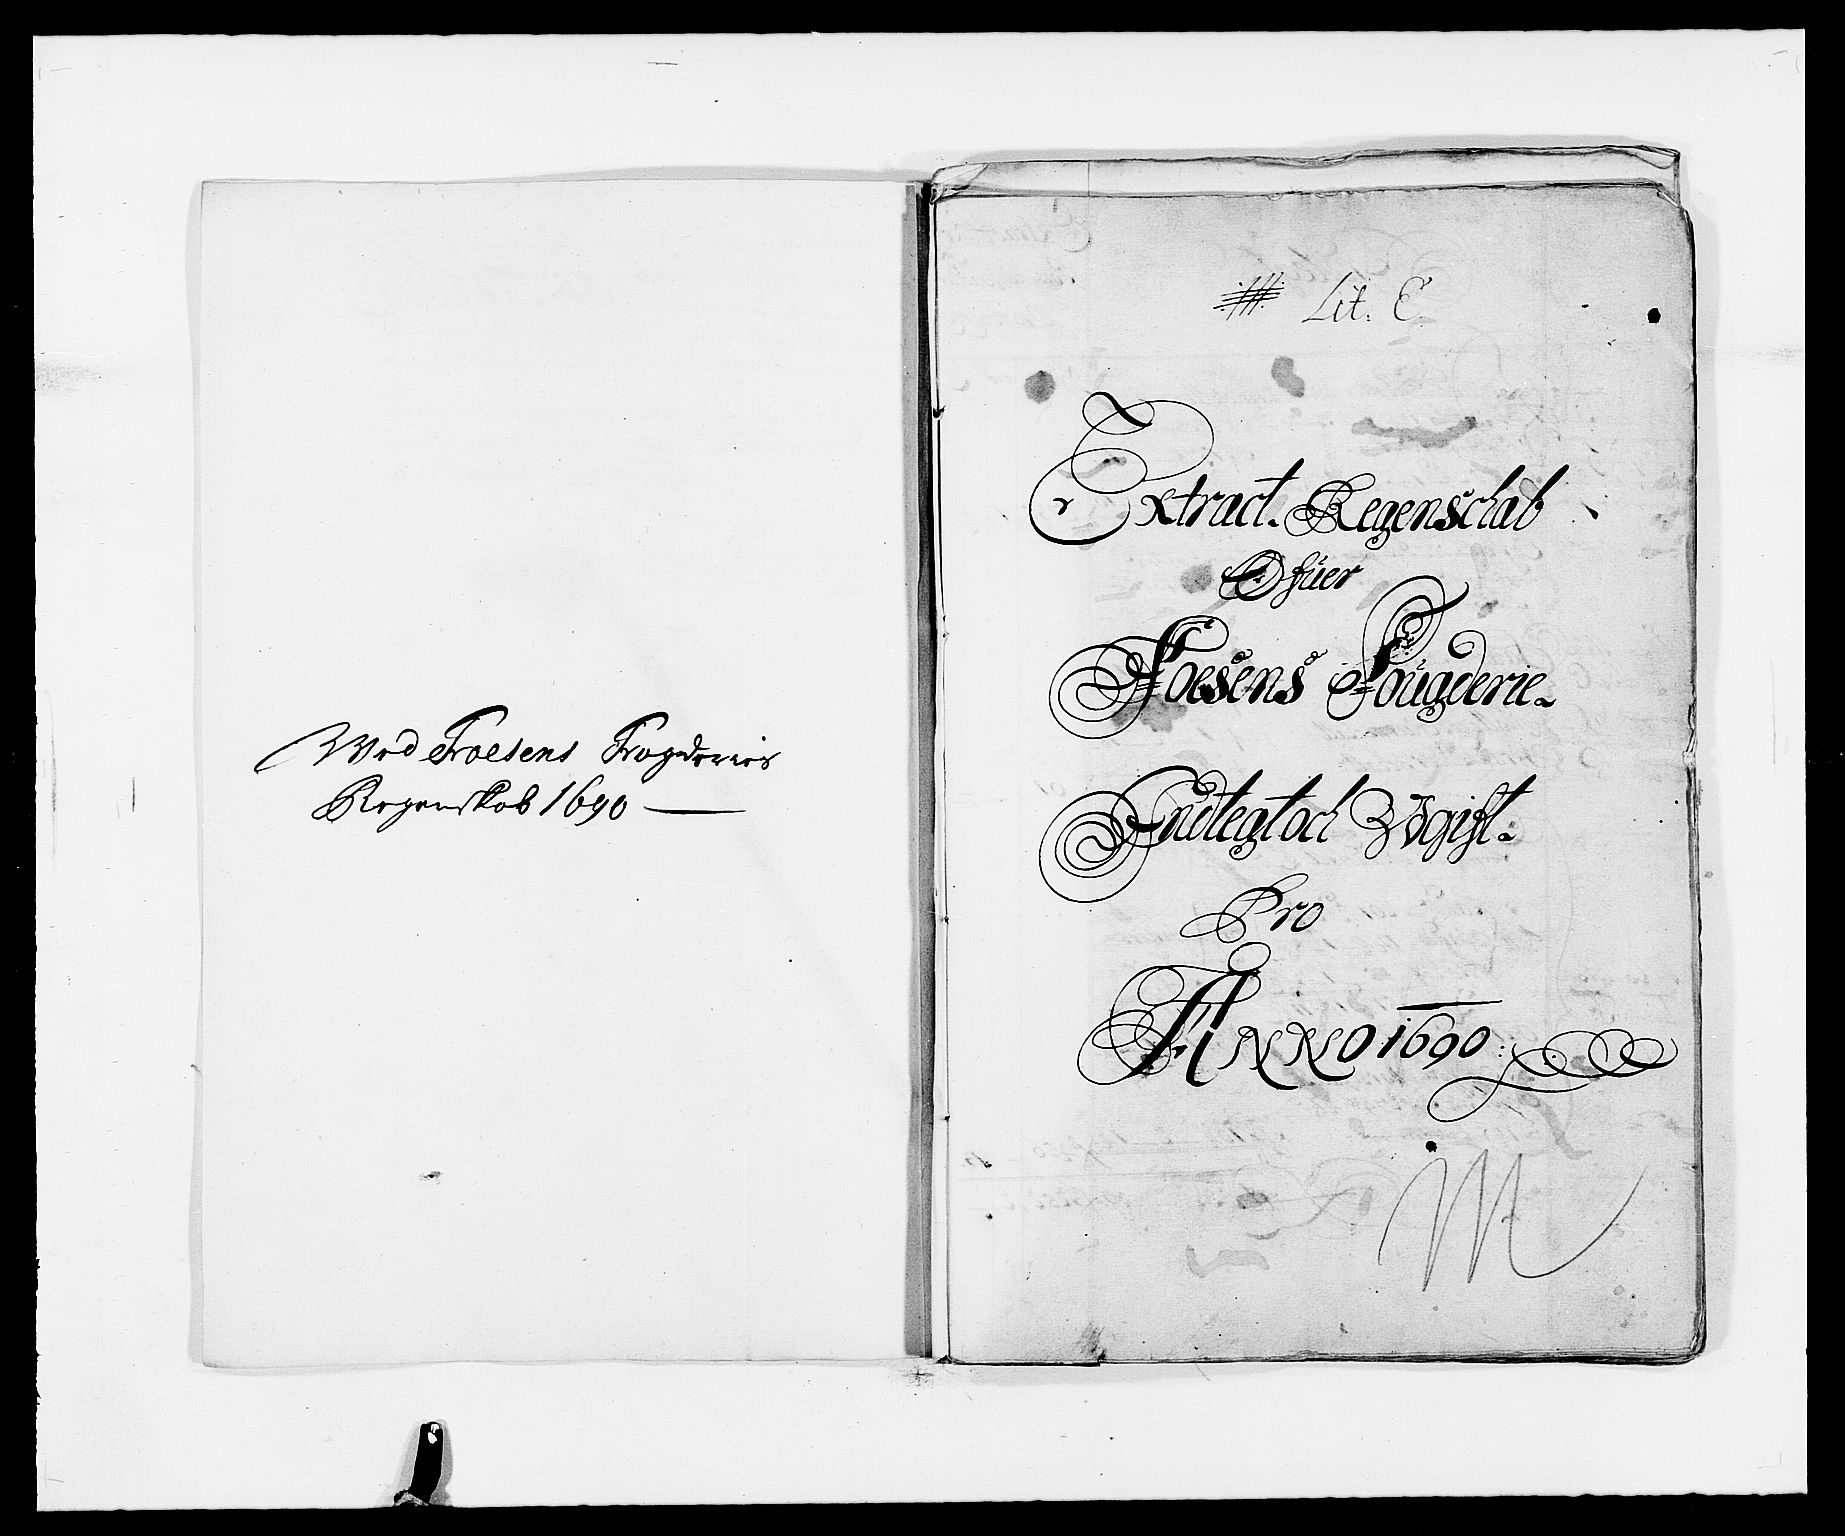 Wed Foesens Fogderies
Regenskab 1690
Lit. E
Extract. Regenschab
Ofuer
Foesens Fougderie
Indtegt och Vdgift.
Pro
ANNO 1690